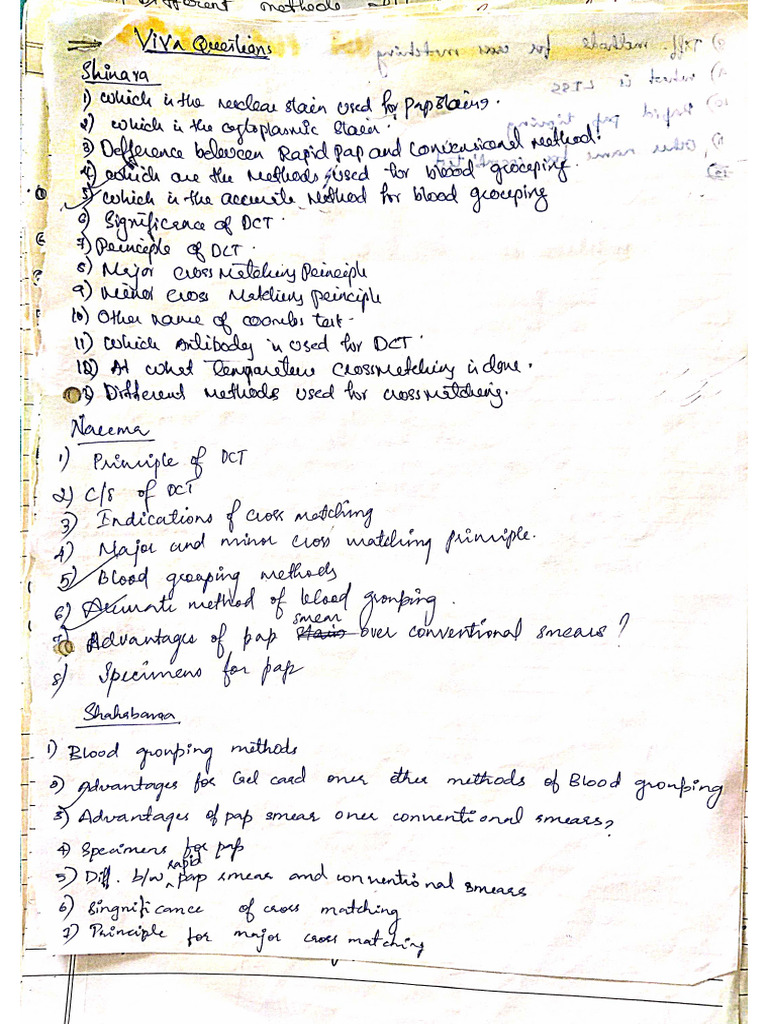 Different methods
⇒ Viva Questions
Shinara
1) Which is the nuclear stain used for Pap stains.
2) Which is the cytoplasmic stain.
3) Defference between Rapid pap and Convensional method.
4) Which are the methods used for blood groceping.
5) Which is the accurate method for blood groceping
6) Significance of DCT.
7) Peinciple of DCT.
8) Major Cross Matching Peinciple
9) Minor Cross Matching peinciple
10) Other name of coombs test.
11) Which antibody is used for DCT.
12) At what temperature crossmatching is done.
Different methods used for crossmatching.
Naeema
1) Principle of DCT
2) C/S of DCT
3) Indications of cross matching
4) Major and minor cross matching principle.
5) Blood grouping methods
6) Accurate method of blood grouping.
7) Advantages of pap smear over conventional smears?
8) Specimens for pap
1) Blood grouping methods
2) Advantages for Gel card over other methods of Blood grouping
3) Advantages of pap smear over conventional smears?
4) Specimens for pap
5) Diff. b/w rapid pap smear and conventional smears
6) Singnificance of cross matching
7) Principle for major cross matching